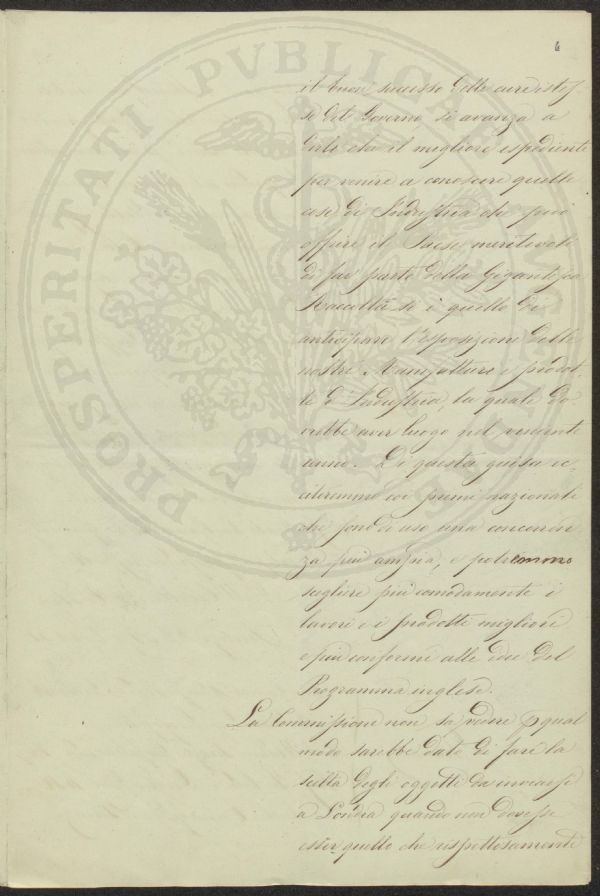 6
il buon successo delle cure istes
se del Governo si avanza a
dirle che il migliore espediente
per venire a conoscere quelle
cose di Industria che può
offrire il Paese meritevoli
di far parte della Gigantesca
Raccolta si è quello di
anticipare l'Esposizione delle
nostre Manifatture e prodot
ti d'Industria, la quale do
vrebbe aver luogo nel venente
anno. Di questa guisa ec
citeremmo coi premi nazionali
che sono di uso una concorren
za più ampia, e potremmo
scegliere più comodamente i
lavori e i prodotti migliori
e più conformi alle idee del
Programma inglese.
La Commissione non sa vedere p qual
modo sarebbe dato di fare la
scelta degli oggetti da inviarsi
a Londra quando non dovesse
esser quello che rispettosamente
PROSPERITATI PVBLICAE